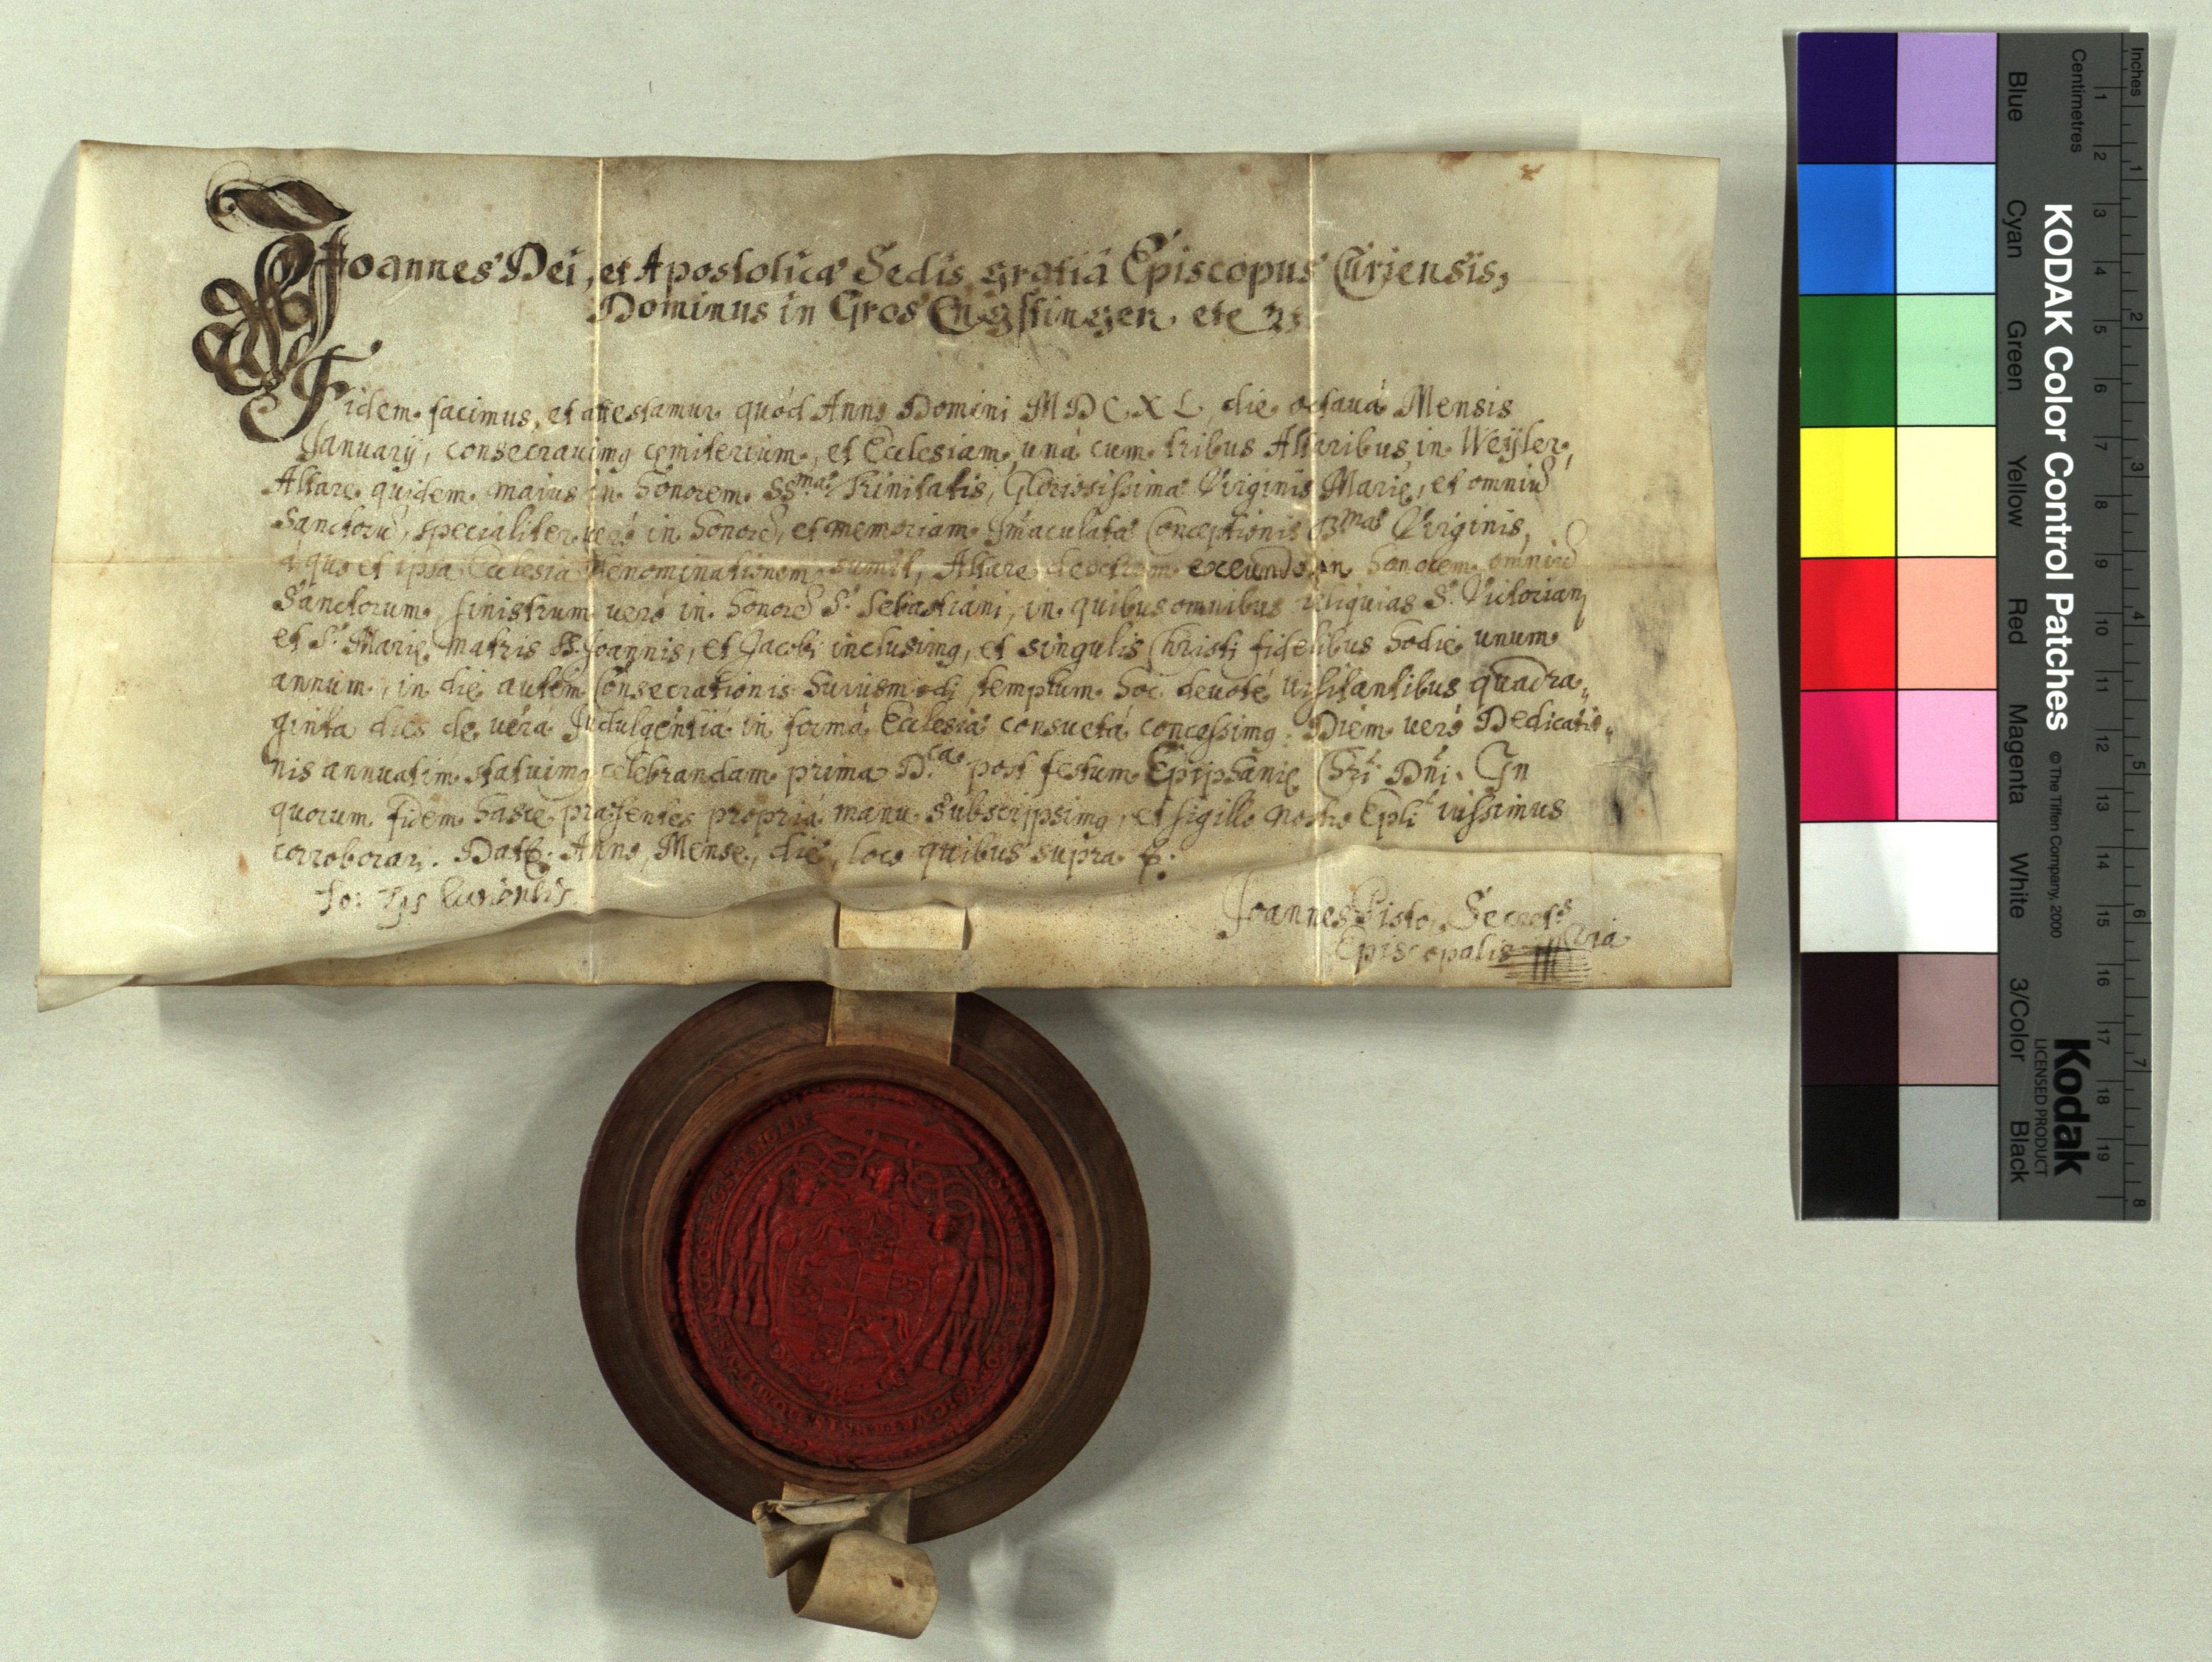 Joannes Dei, et Apostolicæ Sedis gratiâ Episcopus Curiensis,
Dominus in Gros Engstingen. etc
Fidem facimus, et attestamur quòd Anno Domini MDCXL, die octauâ Mensis
Januarij, consecrauimꝰ cęmiterium, et Ecclesiam, unà cum tribus Altaribus in Weÿler,
Altare quidem maius in honorem SS.mæ Trinitatis, Gloriosissimæ Virginis Marię, et omniū
Sanctorū, specialiter verò in honorē, et memoriam Imaculatæ Conceptionis B.mæ Virginis,
à quo et ipsa Ecclesia denominationem sumit, Altare dextrum exeundo in honorem omniū
Sanctorum, sinistrum verò in honorē S. Sebastiani, in quibus omnibus reliquias S. Victorian
et S. Marię matris SS. Joannis, et Jacobi inclusimꝰ, et singulis Christi fidelibus hodie unum
annum, in die autem Consecrationis huiusmodi templum hoc deuotè uisitantibus quadra„
ginta dies de uerâ Indulgentiâ in formâ Ecclesiæ consuetâ concessimꝰ. Diem uerò Dedicatio„
nis annuatim statuimꝰ celebrandam prima D.ca post festum Epiphanię Chri Dñi. In
quorum fidem hasce præsentes propriâ manu subscripsimꝰ, et sigillo nostro Epli iussimus
corroborari. Dat Anno, Mense, die, loco quibus supra
Jo: Eps Curiensis
Joannes Pisto, Secret.s
Episcopalis
Inches
Centimetres
1 2 3 4 5 6 7 8 9 10 11 12 13 14 15 16 17 18 19
1 2 3 4 5 6 7 8
KODAK Color Control Patches © The Tiffen Company, 2000
Kodak
LICENSED PRODUCT
Blue Cyan Green Yellow Red Magenta White 3/Color Black